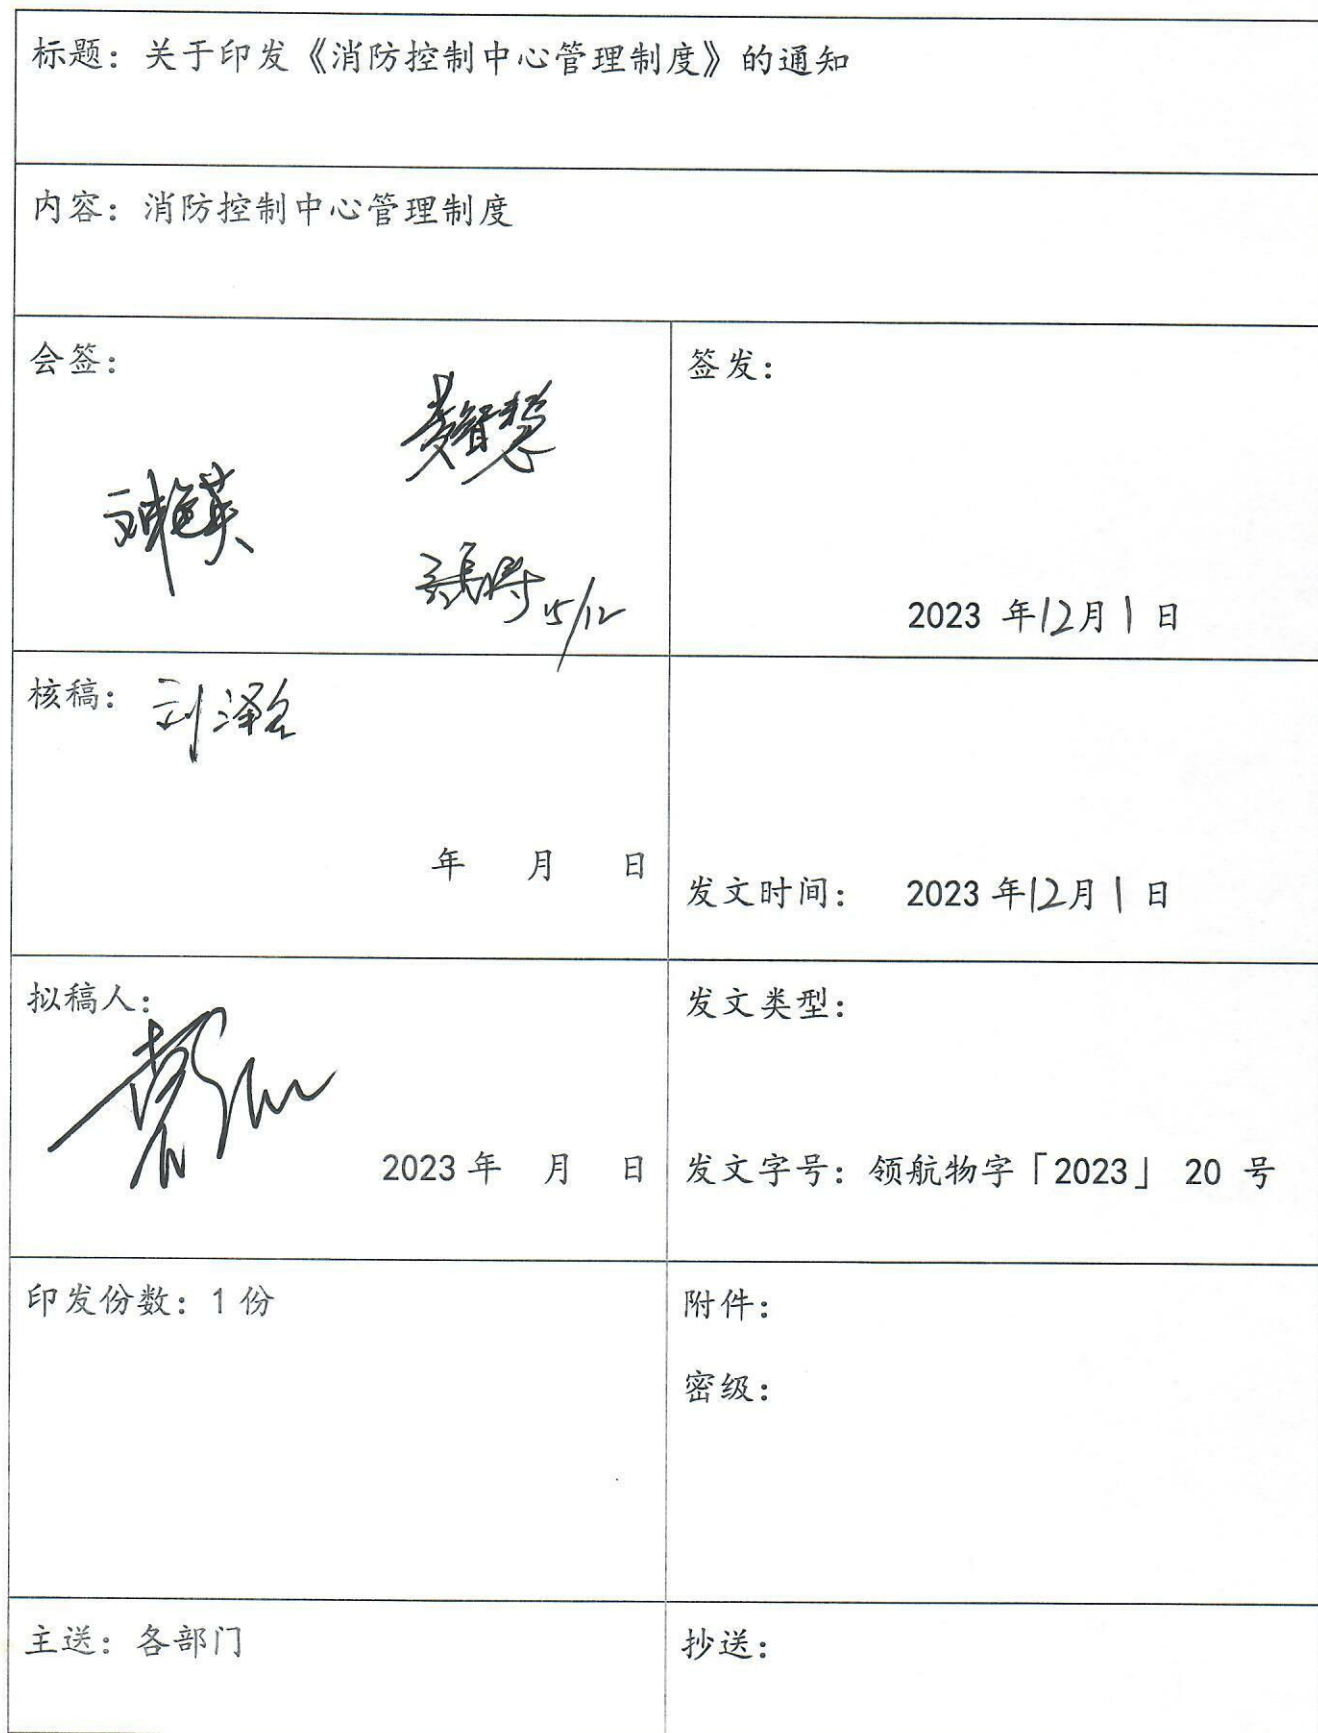 标题：关于印发《消防控制中心管理制度》的通知
内容：消防控制中心管理制度
会签：
签发：
15/12
2023 年12月1日
核稿：刘泽
年 月 日
发文时间： 2023年12月1日
拟稿人：
发文类型：
2023年 月 日
发文字号：领航物字「2023」 20 号
印发份数：1份
附件：
密级：
主送：各部门
抄送：